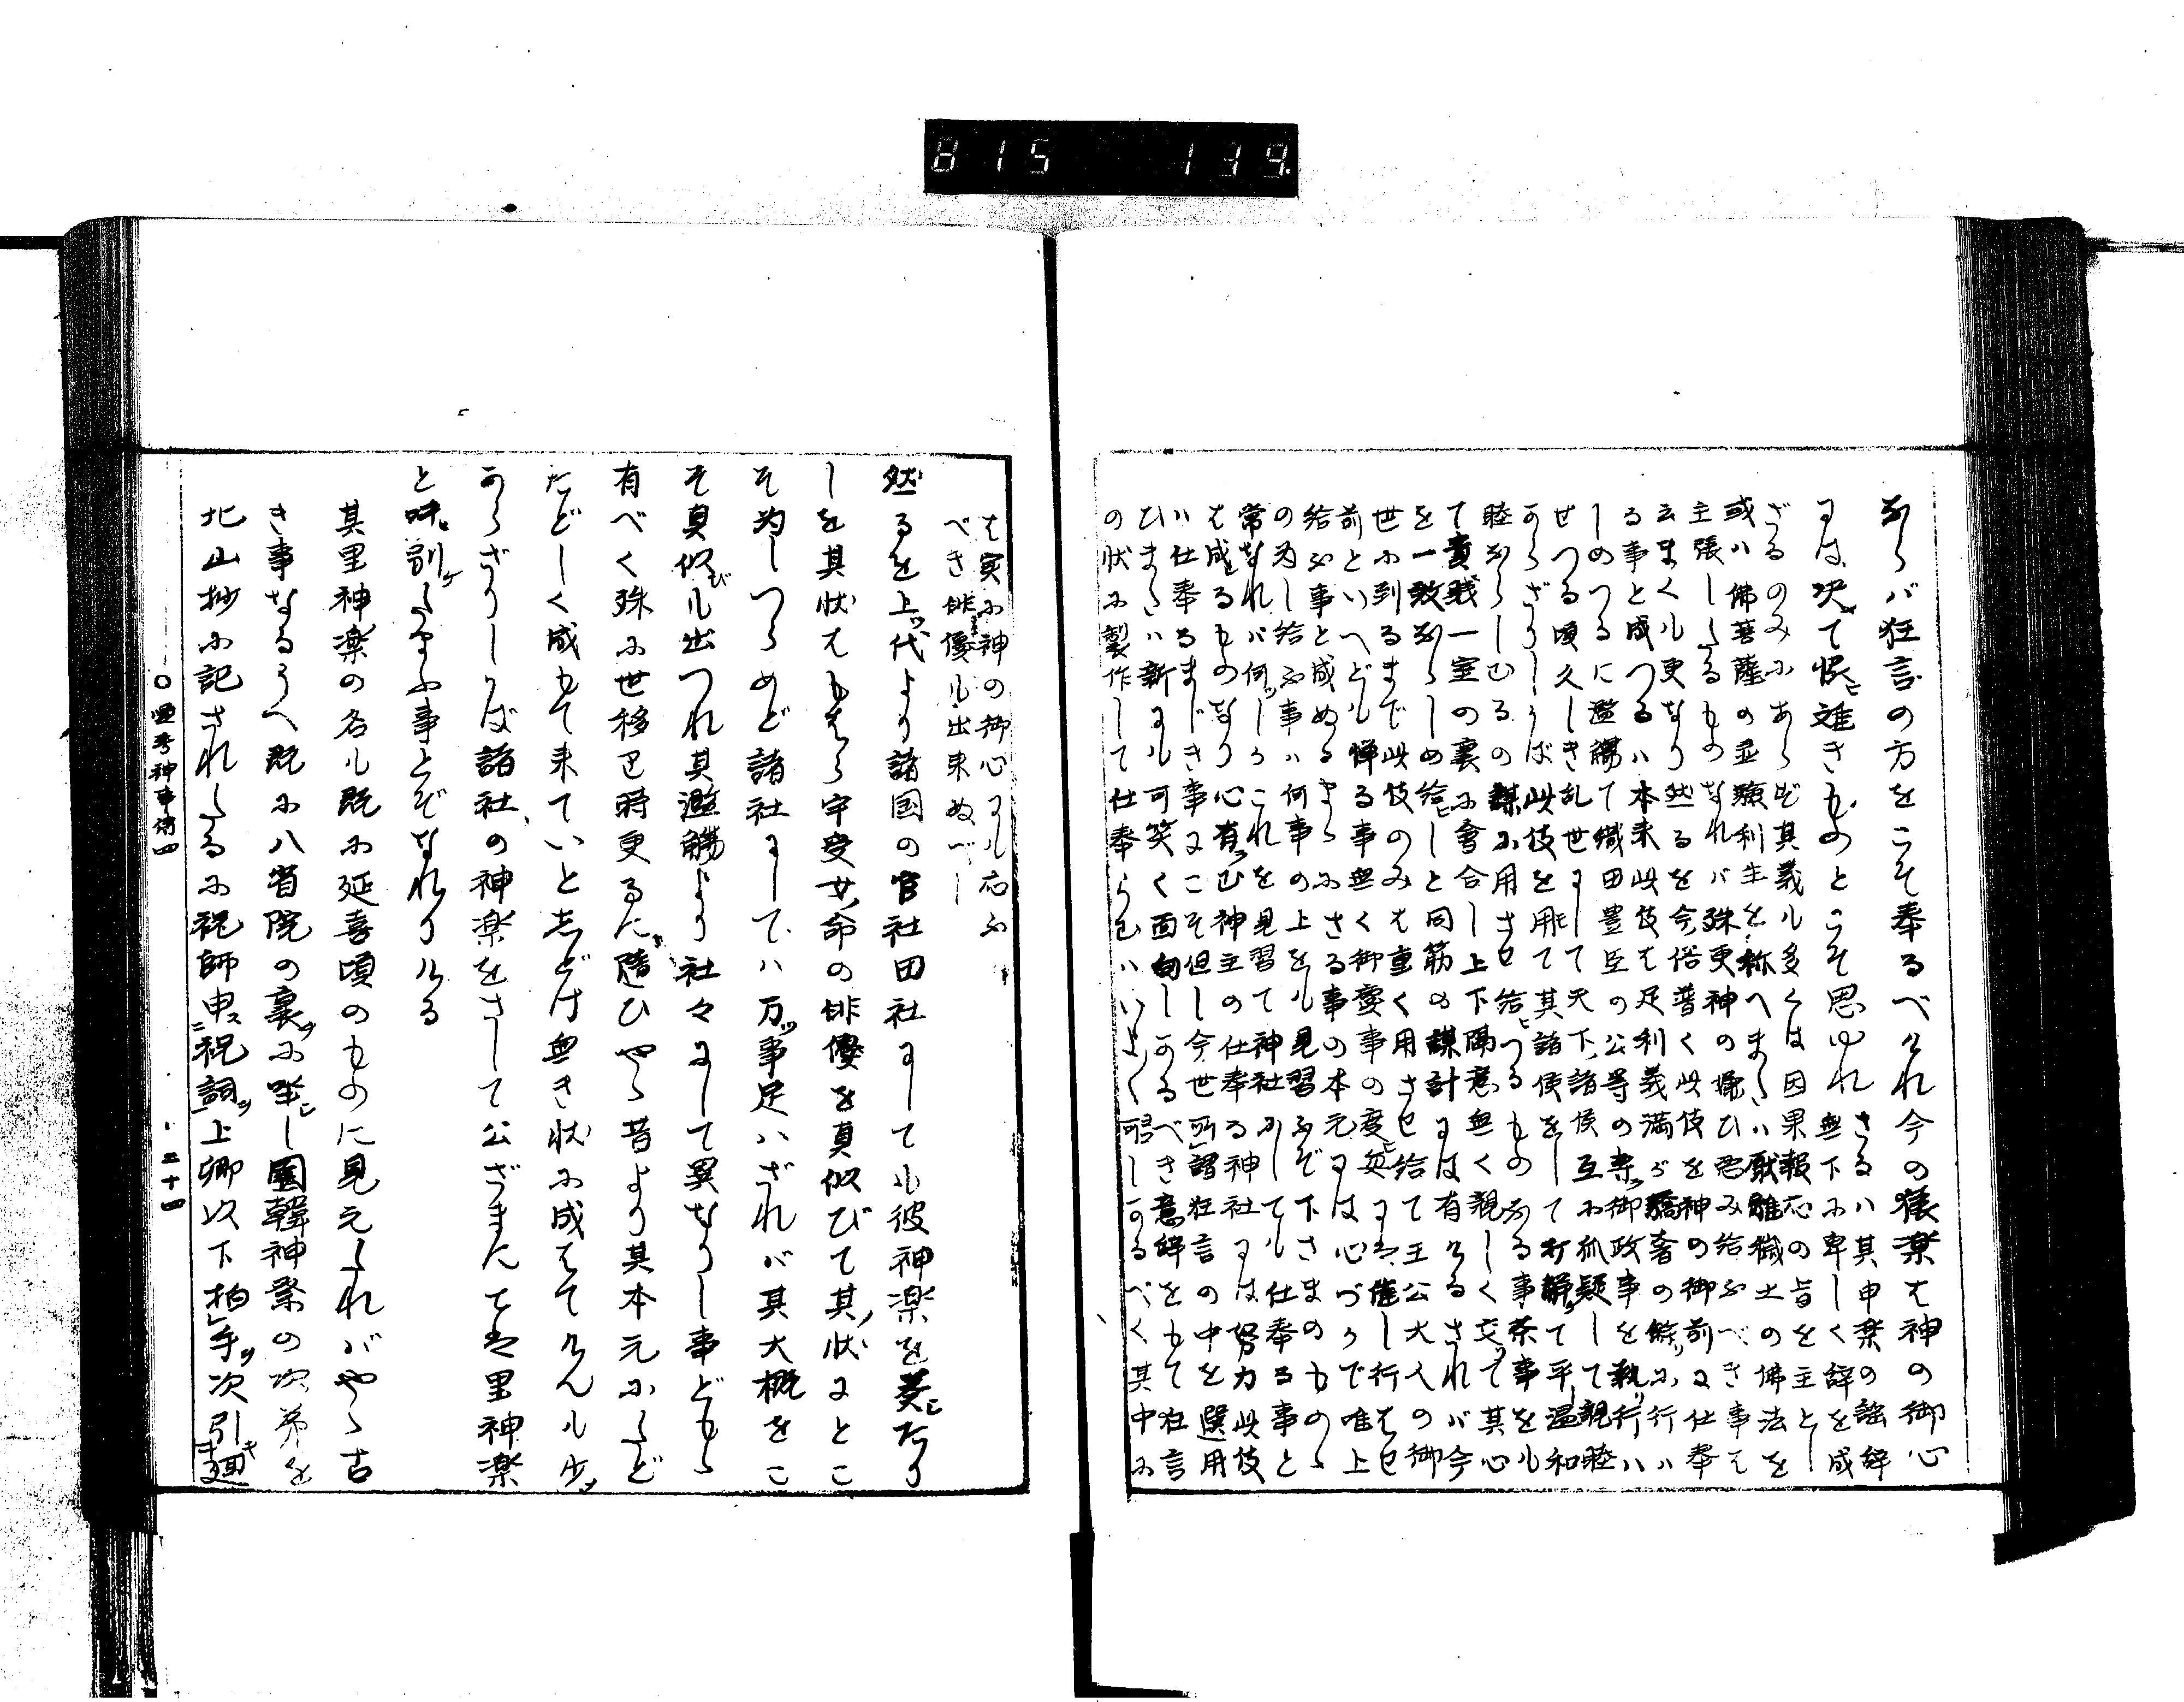 815 139
ならバ狂言の方をこそ奉るべけれ今の猿楽は神の御心
には決て恢ひ難きものとこそ思ゆれ
さるハ其申楽の謡辞
無下に卑しく辞を成
ざるのみにあらず其義も多くは因果報応の旨を主とし
或ハ佛菩薩の霊験利生を称へまたハ厭離穢土の佛法を
主張したるものなれバ殊更神の嫌ひ悪み給ふべき事は
云まくも更なり然るを今俗普く此伎を神の御前に仕奉
る事と成つるハ本来此伎は足利義満が驕奢の餘りに行ハ
しめつるに濫觴て織田豊臣の公等の乗御政事を執行ハ
せつる頃久しき乱世にして天下諸侯互に狐疑して親睦
あらざりしかば此伎を用て其諸侯をして打解て平温和
睦ならしむるの謀に用させ給つるものなる事茶事をも
て貴賤一室の裏に會合し上下隔意無く親しく交て其心
を一致ならしめ給しと同筋の謀計には有けるされバ今
世に到るまで此伎のみは重く用させ給て王公大人の御
前といへども憚る事無く御宴事の度毎には催し行はせ
給ふ事と成ぬるまゝにさる事の本元には心づかで唯上
の為し給ふ事ハ何事の上をも見習ふぞ下さまのものゝ
常なれバ何しかこれを見習て神社にしても仕奉る事と
は成るものなり心有む神主の仕奉る神社には努力此伎
ハ仕奉るまじき事にこそ但し今世所謂狂言の中を選用
ひまたハ新にも可笑く面白しかるべき意辞をもて狂言
の状に製作して仕奉らむハいとよく可しかるべく其中に
は実に神の御心にも応ふ
べき俳優も出来ぬべし
然るを上代より諸国の官社田社にしても彼神楽を奏たり
しを其状はもはら宇受女命の俳優を真似びて其状にとこ
そ為しつらめど諸社にしてハ万事足ハざれバ其大概をこ
そ真似びも出つれ其濫觴より社々にして異なりし事どもゝ
有べく殊に世移り時更るに随ひやゝ昔より其本元にたど
たどしく成もて来ていとしどけ無き状に成はてけんも少
からざりしかば諸社の神楽をさして公ざまにては里神楽
と呼別たまふ事とぞなれりける
其里神楽の名も既に延喜頃のものに見えたれバやゝ古
き事なるうへ既に八省院の裏に坐し園韓神祭の次第を
北山抄に記されたるに祝師申祝詞上卿以下拍手次引廻
○宮寿神事傳四 三十四